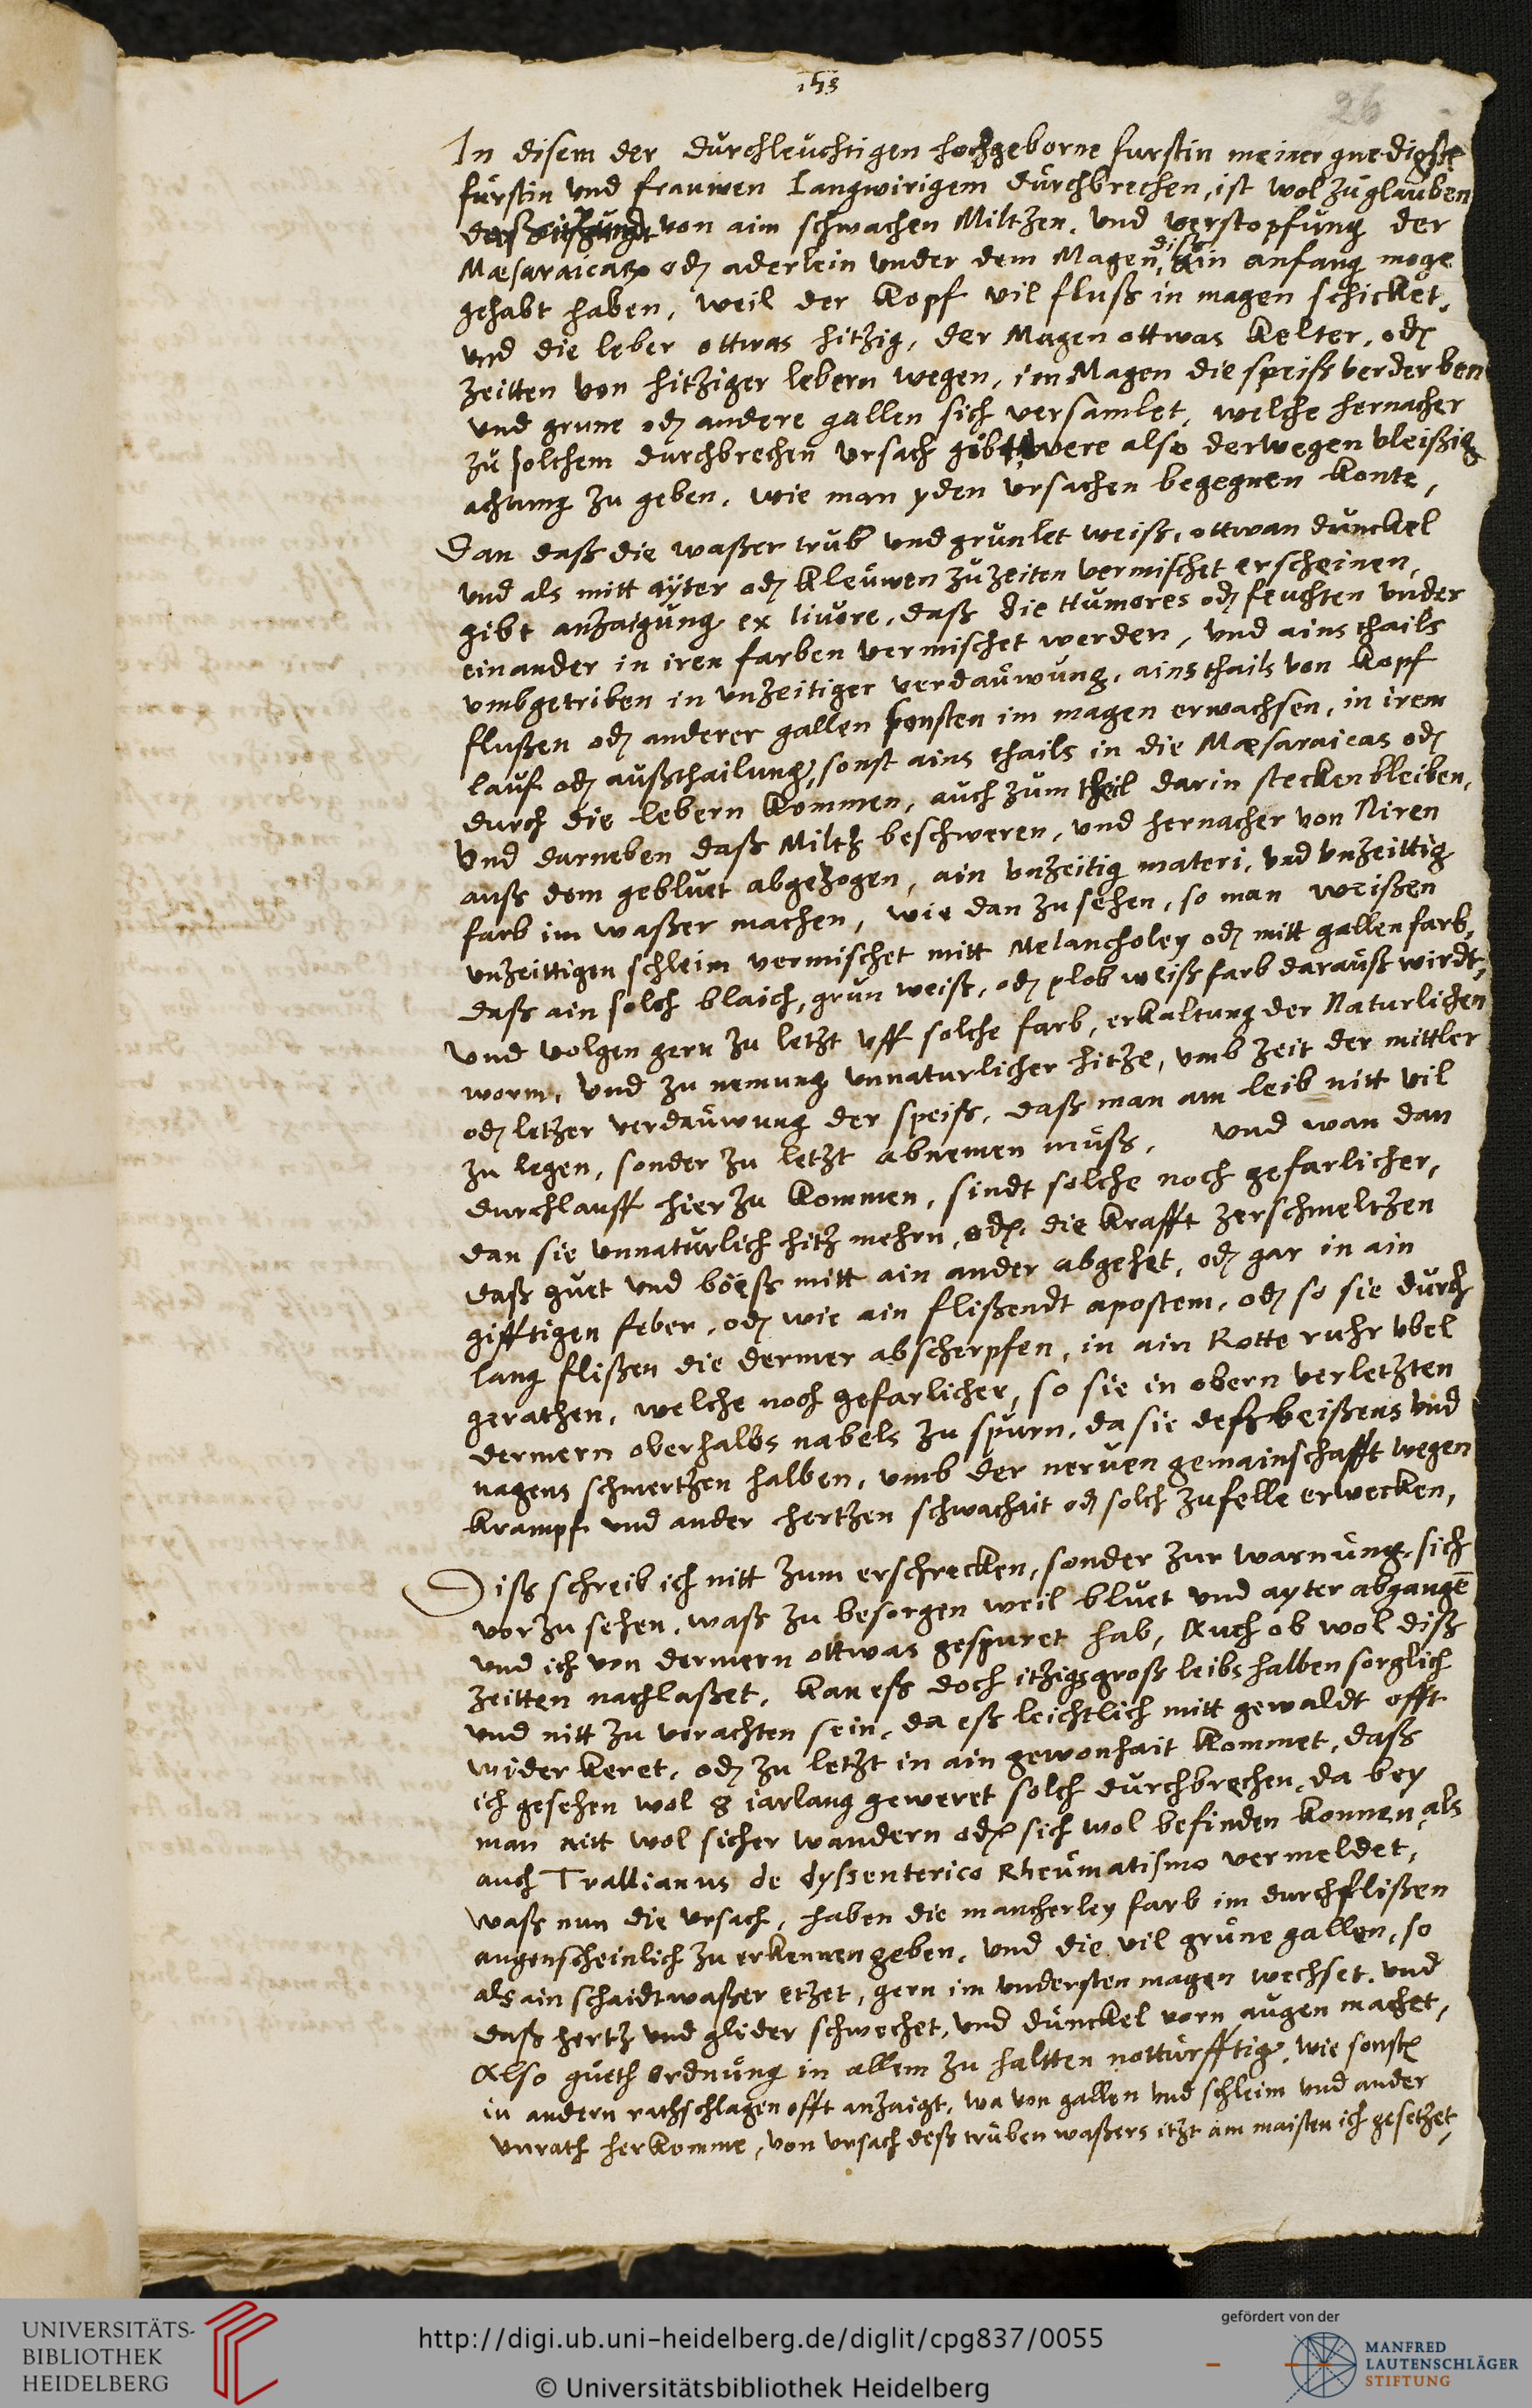 ihs
26
In disem der durchleuchtigen hochgeborne furstin meiner gnedigste
fürstin vnd frauwen langwirigem durchbrechen, ist wol zu glauben
von aim schwachen Miltzen, vnd verstopfung der
disz
Mæsaraicarum od aderlein vnder dem Magen, sein anfang moge
gehabt haben, weil der kopf vil fluß in magen schicket,
vnd die leber ottwas hitzig, der Magen ottwas kelter, od
zeitten von hitziger lebern wegen, im Magen die speiß verderben
vnd grune od andere gallen sich versamlet, welche hernacher
zu solchem durchbrechen vrsach gibt, were also derwegen vleißig
achtung zu geben, wie man yden vrsachen begegnen konte,
Dan daß die waßer trub vnd grunlet weiß, ottwan dunckel
vnd als mitt ayter od kleuwen zu zeiten vermischet erscheinen,
gibt anzaigung ex livore, daß die Humores od feuchten vnder
einander in iren farben vermischet werden, vnd ains thails
vmbgetriben in vnzeitiger verdauwung, ains thails von kopf
flußen od anderer gallen sonsten im magen erwachsen, in irem
lauf od außthailung, sonst ains thails in die Mæsaraicas od
durch die lebern kommen, auch zum theil darin stecken bleiben,
vnd darneben daß Miltz beschweren, vnd hernacher von Niren
auß dem gebluet abgezogen, ain vnzeitig materi, vnd vnzeittig
farb im waßer machen, wie dan zu sehen, so man weißen
vnzeittigen schleim vermischet mitt Melancholey od mitt gallenfarb,
daß ain solch blaich, grun weiß, od plob weiß farb darauß wirdt,
vnd volgen gern zu letzt vff solche farb, erkaltung der Naturlichen
worm, vnd zu nemung vnnaturlicher hitze, vmb zeit der mittler
od letzer verdauwung der speiß, daß man am leib nitt vil
zu legen, sonder zu letzt abnemen muß, vnd wan dan
durchlauff hierzu kommen, sindt solche noch gefarlicher,
dan sie vnnaturlich hitz mehrn, od die krafft zerschmeltzen
daß guet vnd böeß mitt ain ander abgehet, od gar in ain
gifftigen feber, od wie ain flißendt apostem, od so sie durch
lang flißen die dermer abscherpfen, in ain Rotte ruhr vbel
gerathen, welche noch gefarlicher, so sie in obern verletzten
dermern oberhalbs nabels zu spurn, da sie deß beißens vnd
nagens schmertzen halben, vmb der nerven gemainschafft wegen
krampf vnd ander hertzen schwachait od solch zufelle erwecken,
Diß schreib ich nitt zum erschrecken, sonder zur warnung, sich
vor zu sehen, waß zu besorgen weil bluet vnd ayter abgangē
vnd ich von dermern ottwas gespuret hab, Auch ob wol diß
zeitten nachlaßet, kan eß doch itzigs groß leibs halben sorglich
vnd nitt zu verachten sein, da eß leichtlich mitt gewaldt offt
wider keret, od zu letzt in ain gewonhait kommet, daß
ich gesehen wol 8 iarlang geweret solch durchbrechen, da bey
man nitt wol sicher wandern od sich wol befinden konnen, als
auch Trallianus de dyssenterico Rheumatismo vermeldet,
waß nun die vrsach, haben die mancherley farb im durchflißen
augenscheinlich zu erkennen geben, vnd die vil grune gallen, so
als ain schaidtwaßer etzet, gern im vndersten magen wechset, vnd
daß hertz vnd glider schwechet, vnd dunckel vorn augen machet,
Also gueth ordnung in allem zu haltten notturfftig, wie sonst
in andern rathschlagen offt anzaigt, wa von gallen vnd schleim vnd ander
vnrath herkomme, von vrsach deß truben waßers itzt am maisten ich gesetzet,
UNIVERSITÄTS-
BIBLIOTHEK
HEIDELBERG
http://digi.ub.uni-heidelberg.de/diglit/cpg837/0055
© Universitätsbibliothek Heidelberg
gefördert von der
MANFRED
LAUTENSCHLÄGER
STIFTUNG